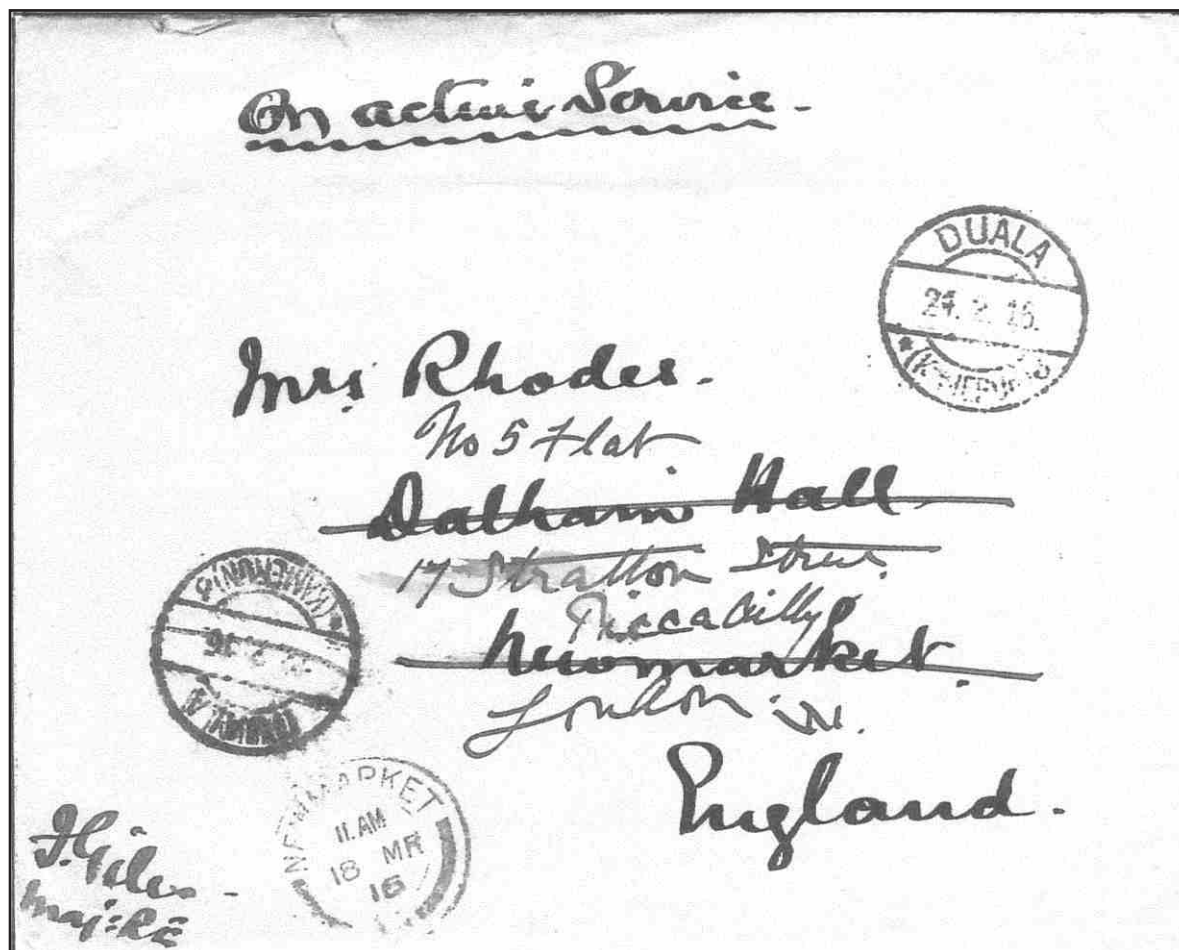 On active Service.
DUALA
2.16.
Mrs Rhodes.
No 5 Flat
Dalham Hall
17 Stratton Street
Piccadilly
Newmarket.
London. W.
England.
(KAMERUN)
DUALA
NEWMARKET
11. AM
18 MR
16
F. Giles -
Maj: RE